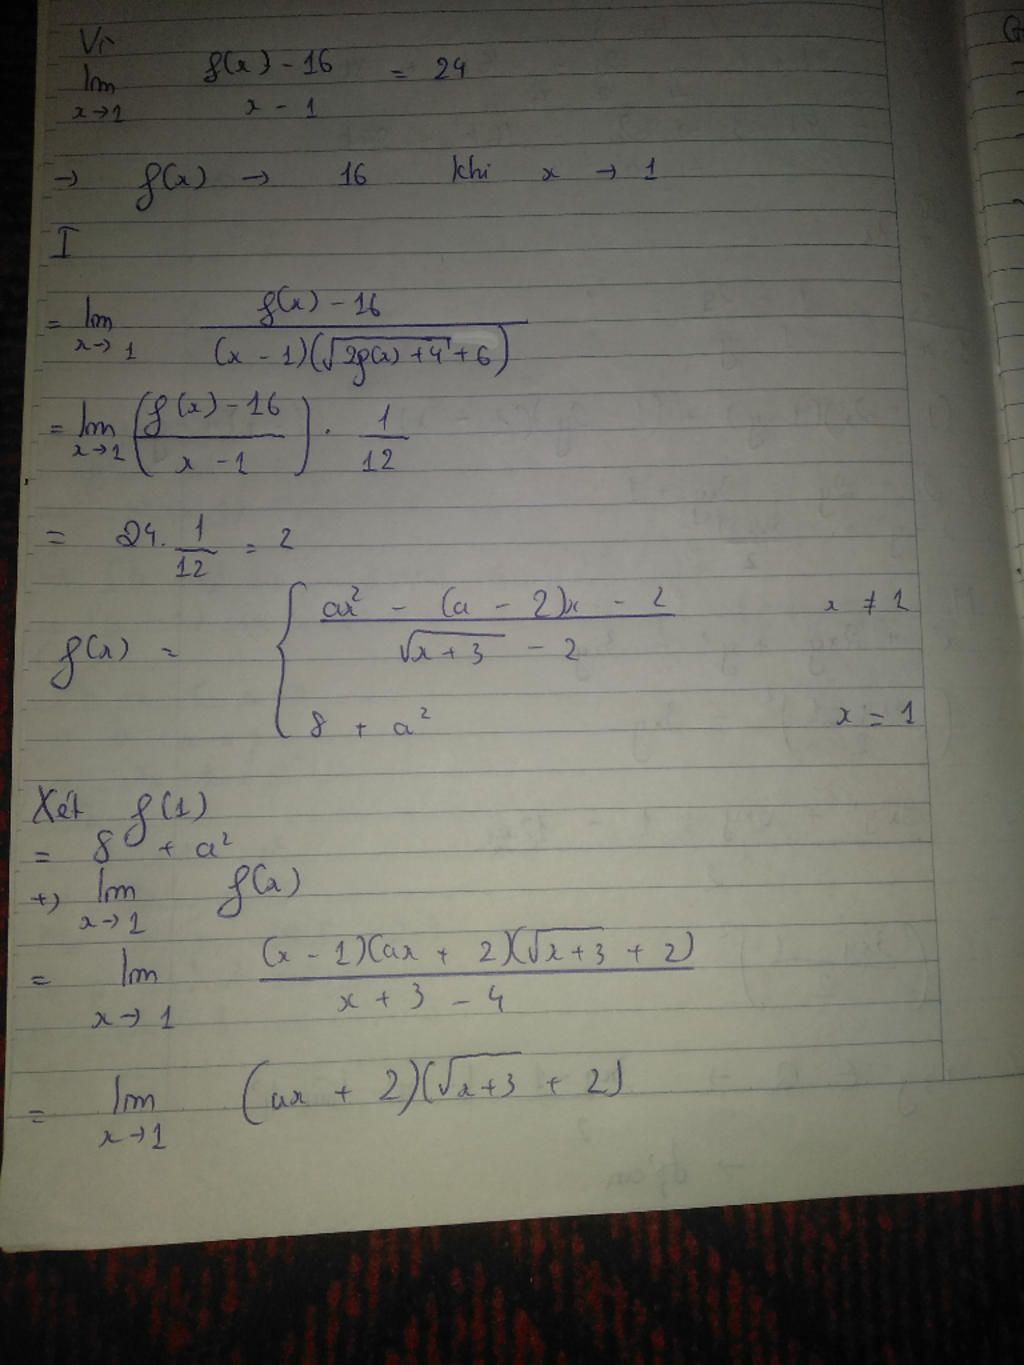 Vì
lim f(x) - 16 / x - 1 = 24
x→1
→ f(x) → 16 khi x → 1
I
= lim f(x) - 16 / (x - 1)(√2f(x) + 4 + 6)
x→1
= lim (f(x) - 16 / x - 1) . 1/12
x→1
= 24. 1/12 = 2
f(x) = { ax² - (a - 2)x - 2 / √x + 3 - 2 x ≠ 1
8 + a² x = 1
Xét f(1)
= 8 + a²
+) lim f(x)
x→1
= lim (x - 1)(ax + 2)(√x+3 + 2) / x + 3 - 4
x→1
= lim (ax + 2)(√x+3 + 2)
x→1